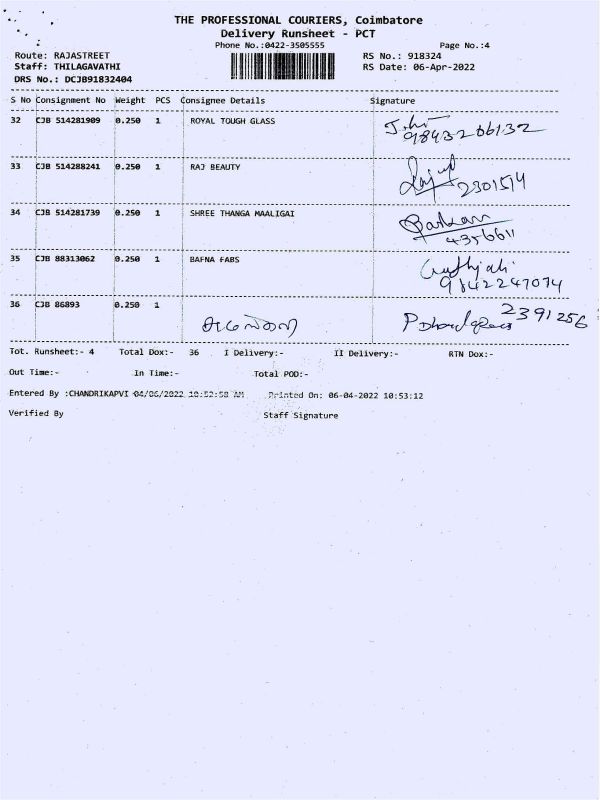 THE PROFESSIONAL COURIERS, Coimbatore
Delivery Runsheet - PCT
Phone No.:0422-3505555 Page No.:4
Route: RAJASTREET RS No.: 918324
Staff: THILAGAVATHI RS Date: 06-Apr-2022
DRS No.: DCJB91832404
S No Consignment No Weight PCS Consignee Details Signature
32 CJB 514281909 0.250 1 ROYAL TOUGH GLASS
98432 06132
33 CJB 514288241 0.250 1 RAJ BEAUTY
2301514
34 CJB 514281739 0.250 1 SHREE THANGA MAALIGAI
4356611
35 CJB 88313062 0.250 1 BAFNA FABS
9842247074
36 CJB 86893 0.250 1
2391256
Tot. Runsheet:- 4 Total Dox:- 36 I Delivery:- II Delivery:- RTN Dox:-
Out Time:- In Time:- Total POD:-
Entered By :CHANDRIKAPVI 04/06/2022 10:52:58 AM Printed On: 06-04-2022 10:53:12
Verified By Staff Signature